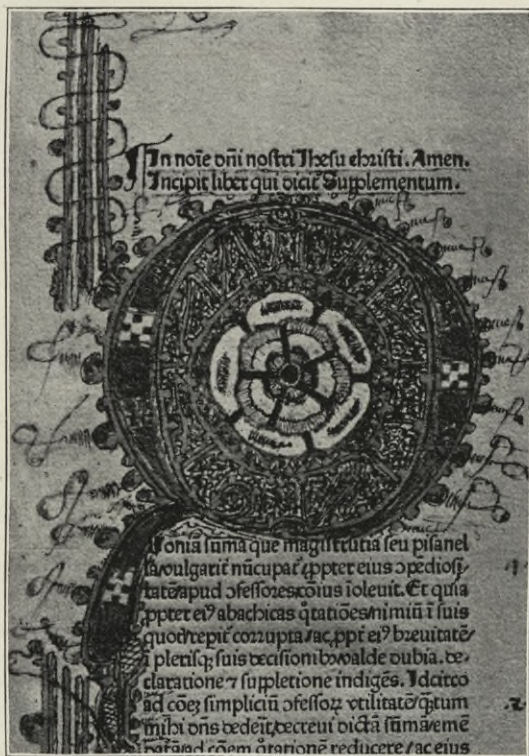 In noīe dn̄i nostri Ihesu christi. Amen.
Incipit liber qui dicit᷑ Supplementum.
Q
Uoniā sūma que magistrutia seu pisanel
la/vulgarit᷑ nūcupat᷑ ꝓpter eius ↄpēdiosi-
tatē/apud ↄfessores cōius īoleuit. Et quia
ꝓpter eiꝰ abachicas q̄tatiōes/nimiū ī suis
quot/repit᷑ corrupta/ac ꝓpt᷑ eiꝰ breuitatē/
ī plerisqꝫ suis decisionibꝰ/valde dubia. de-
claratione ⁊ suppletione indigēs. Idcirco
ad cōeꝫ simpliciū ↄfessoꝝ vtilitatē/q̄tum
mihi dn̄s dedeīt/decreui dictā sūmā/emē
datā/ad cōem q̄tationē reducere/ac eius